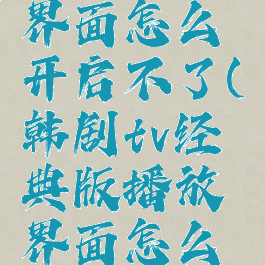 界面怎么
开启不了(
韩剧tv经
典版播放
界面怎么